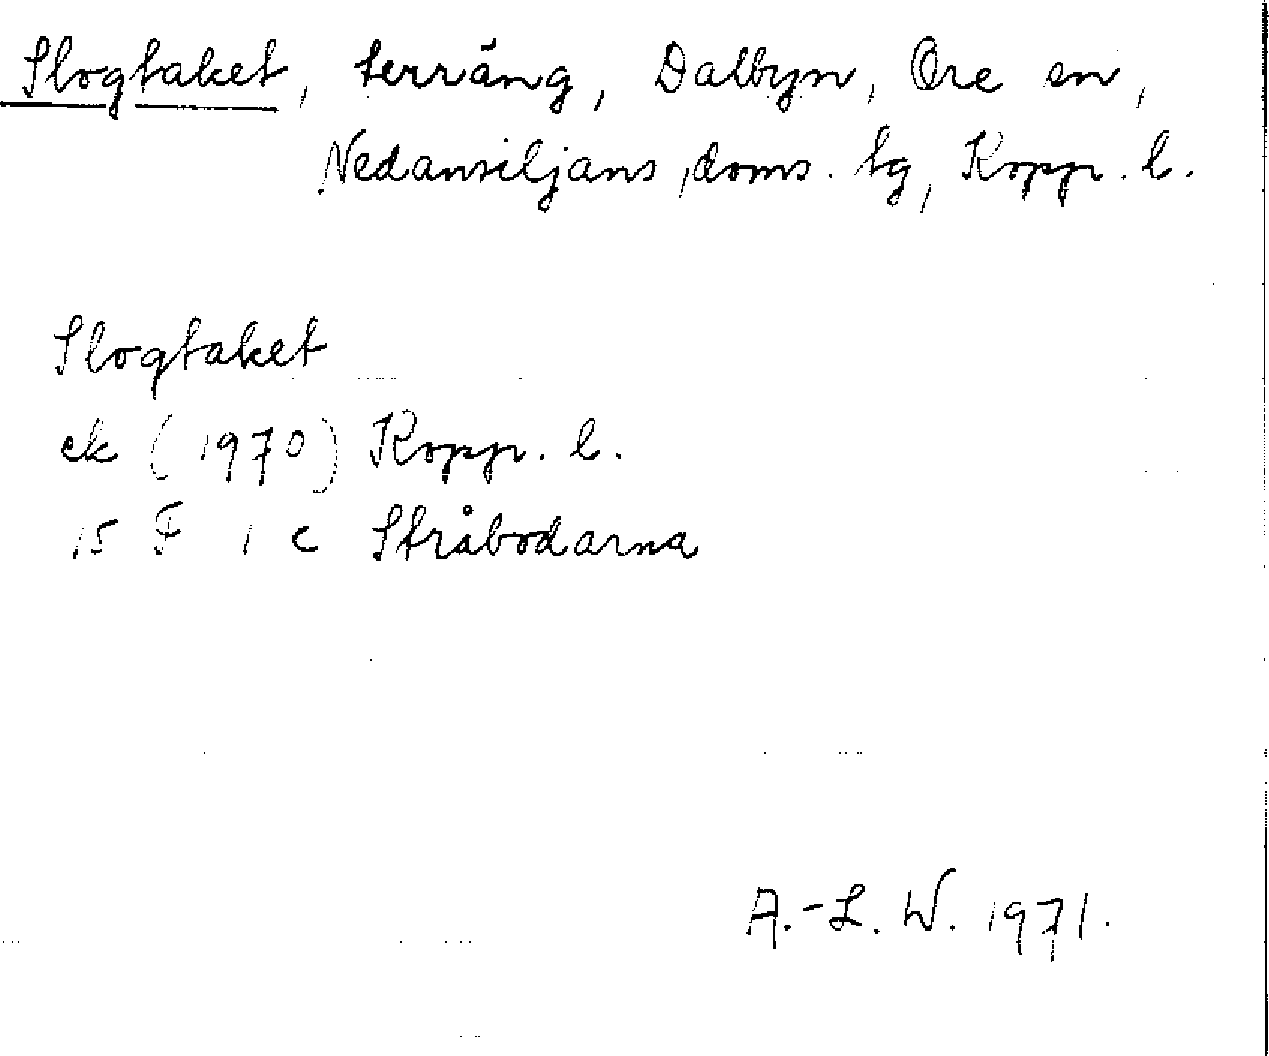 Slogtaket, terräng, Dalbyn, Ore sn,
Nedansiljans doms. tg, Kopp. l.
Slogtaket
ek (1970) Kopp. l.
15 F 1 c Stråbodarna
A.-L. W. 1971.